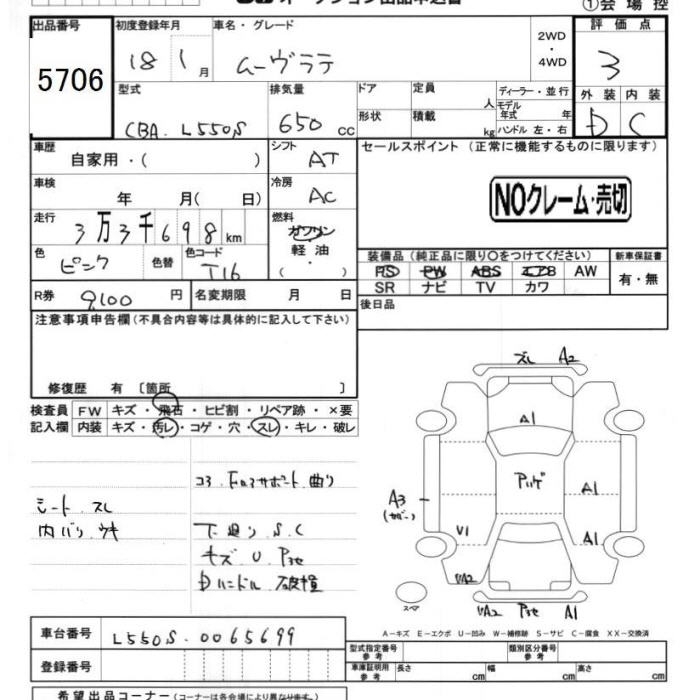 ①会場控
出品番号 初度登録年月 車名・グレード 2WD・4WD 評価点
5706 18 1月 ムーヴラテ 3
型式 排気量 ドア 定員 人 ディーラー・並行 外装 内装
モデル年式 年
CBA. L550S 650 cc 形状 積載 kg ハンドル 左・右 D C
車歴 自家用・( ) シフト AT セールスポイント (正常に機能するものに限ります)
車検 年 月( 日) 冷房 AC NOクレーム・売切
走行 3万3千698km 燃料 ガソリン
軽油・( )
色 ピンク 色替 色コード T16 装備品 (純正品に限り○をつけてください) 新車保証書
PS PW ABS エアB AW 有・無
SR ナビ TV カワ
R券 9,100 円 名変期限 月 日 後日品
注意事項申告欄(不具合内容等は具体的に記入して下さい)
修復歴 有 〔箇所 〕
検査員 FW キズ・飛石・ヒビ割・リペア跡・×要
記入欄 内装 キズ・汚レ・コゲ・穴・スレ・キレ・破レ
スレ A2
A1
コア
シート スレ
内バリ ウキ
下廻り S.C
キズ U
Dハンドル 破損
A3
A1
U1 A1
UA2
スペア
UA2 A1
A-キズ E-エクボ U-凹み W-補修跡 S-サビ C-腐食 XX-交換済
車台番号 L550S-0065699 型式指定番号 参考 類別区分番号 参考
登録番号 車庫証明用 参考 長さ cm 幅 cm 高さ cm
希望出品コーナー (コーナーは各会場により異なります)